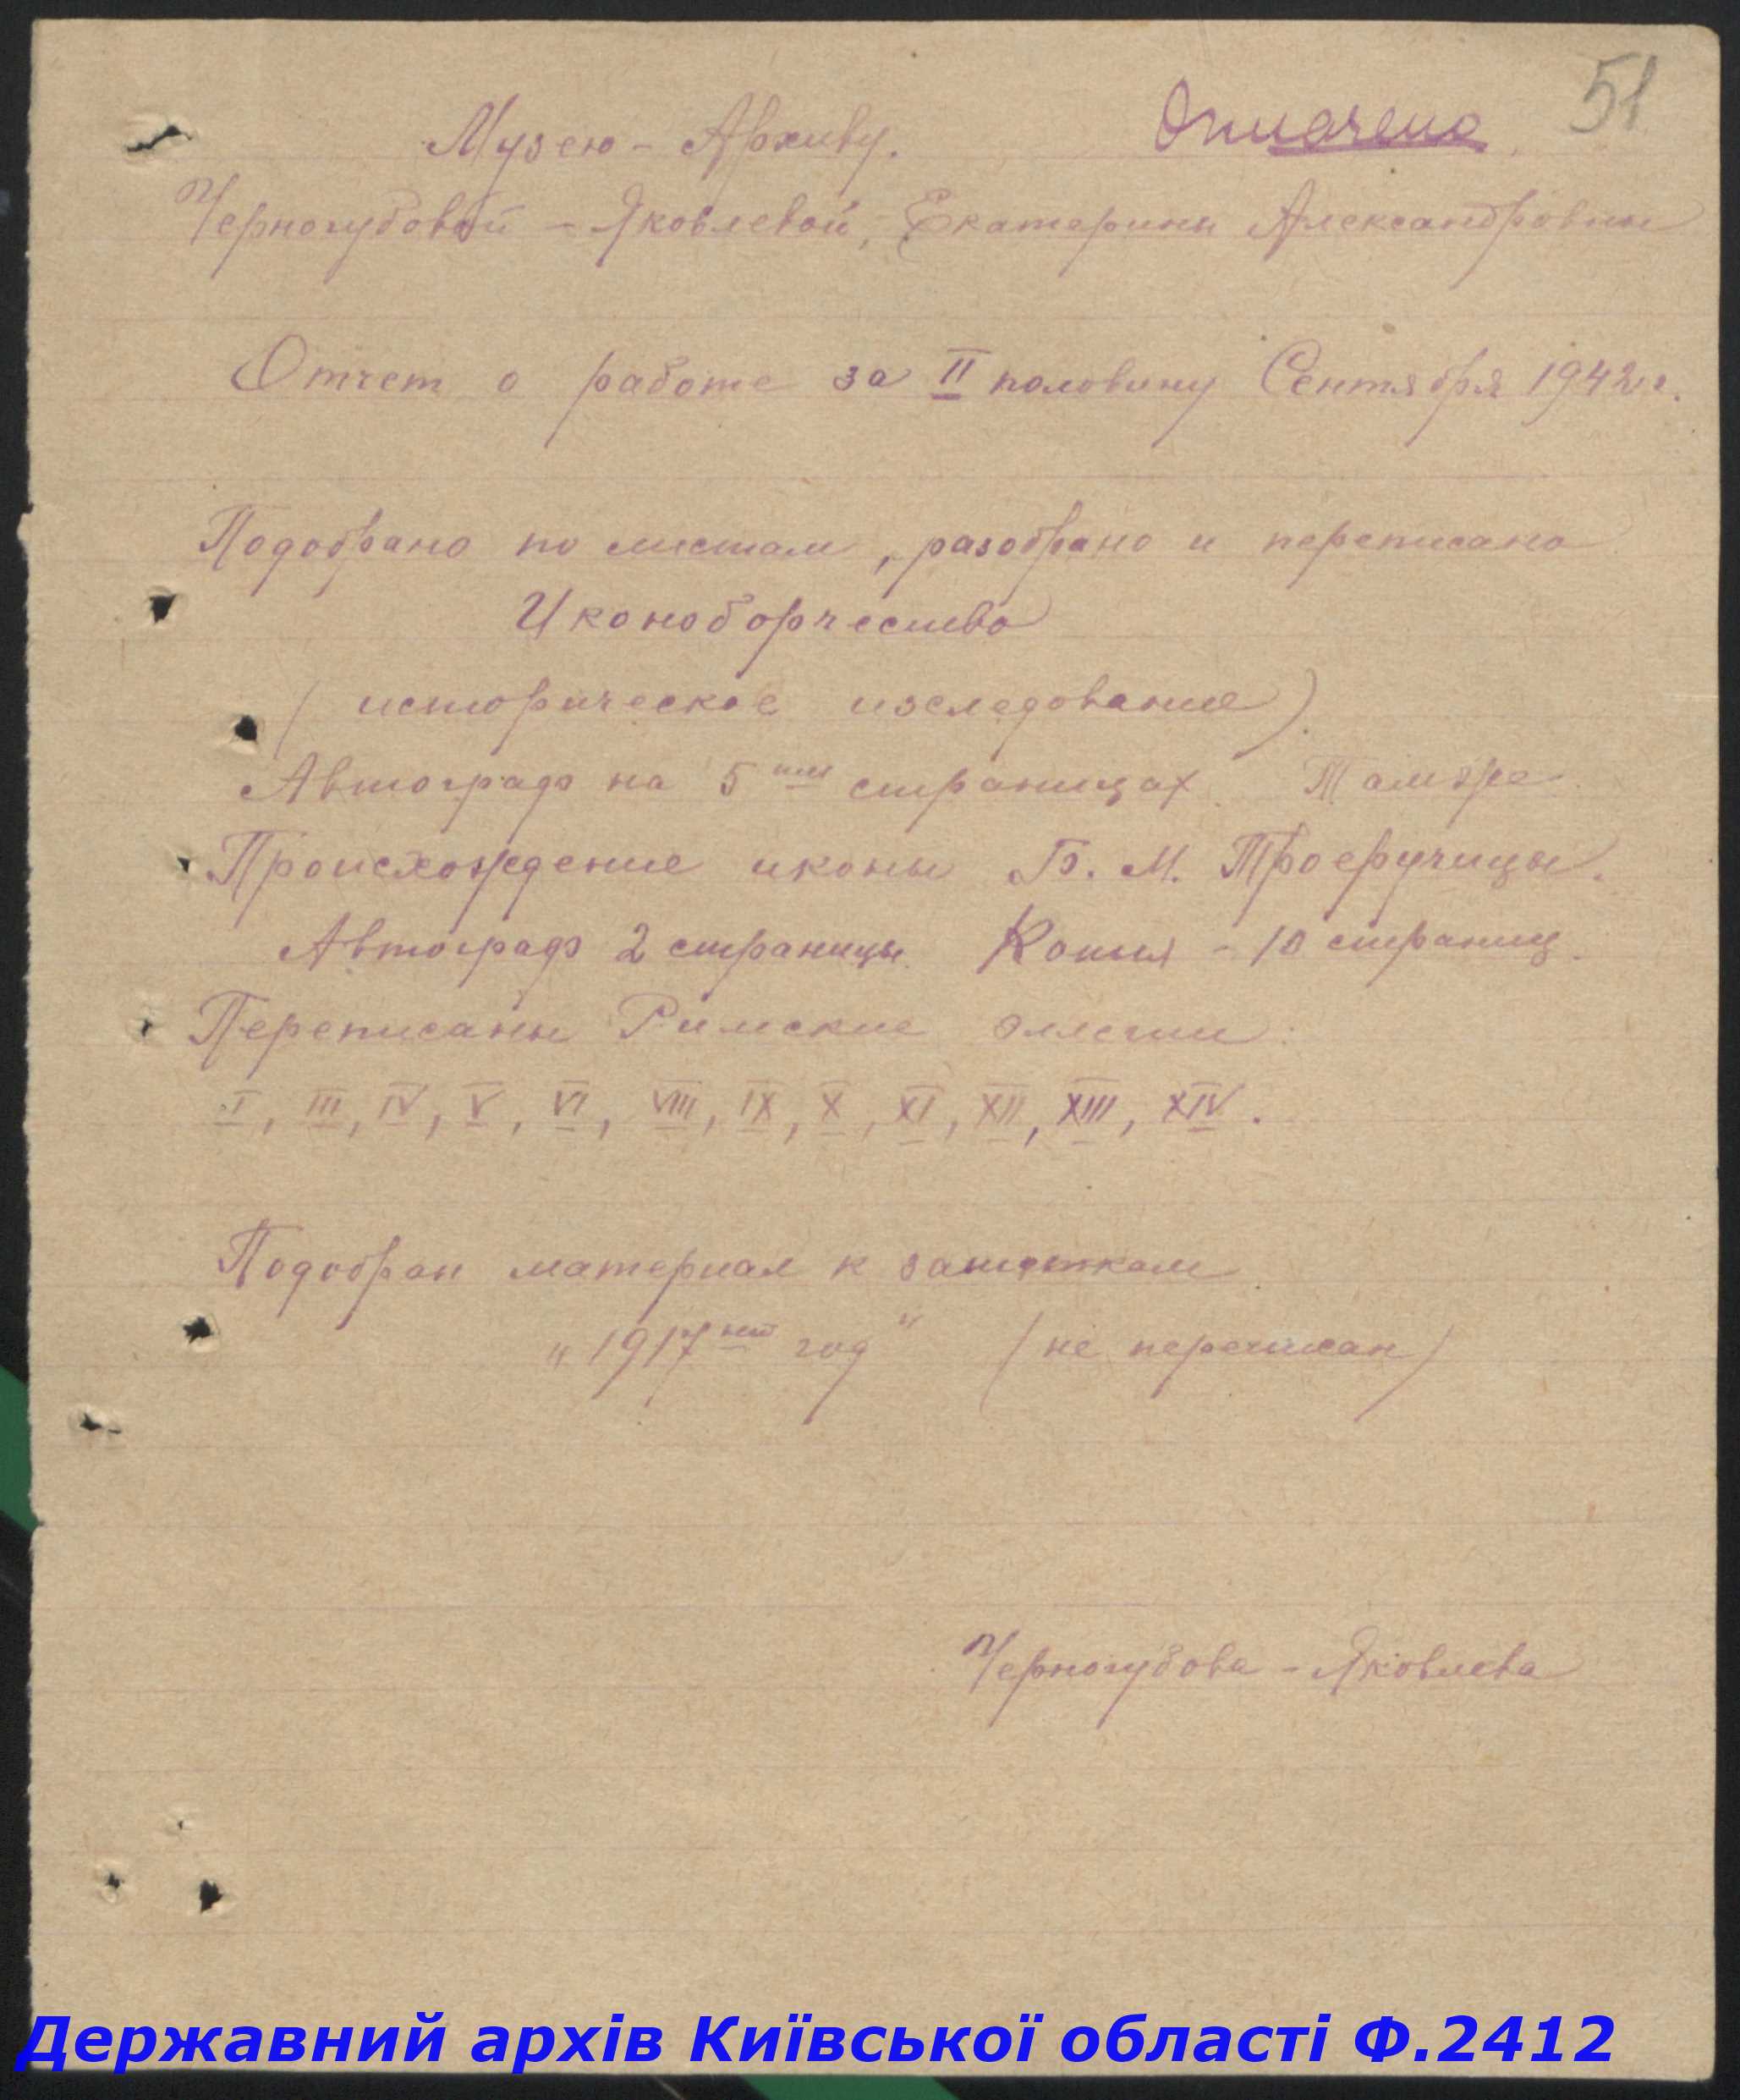 51
Оплачено
Музею - Архиву.
Черногубовой - Яковлевой, Екатерины Александровны
Отчет о работе за II половину Сентября 1942 г.
Подобрано по листам, разобрано и переписано
Иконоборчество
(историческое изследование)
Автограф на 5ти страницах. Там же
Происхождение иконы Б. М. Троеручицы.
Автограф 2 страницы. Копия - 10 страниц.
Переписаны Римские эллегии:
I, III, IV, V, VI, VIII, IX, X, XI, XII, XIII, XIV.
Подобран материал к заметкам
„1917ный год" (не переписан)
Черногубова - Яковлева
Державний архів Київської області Ф.2412